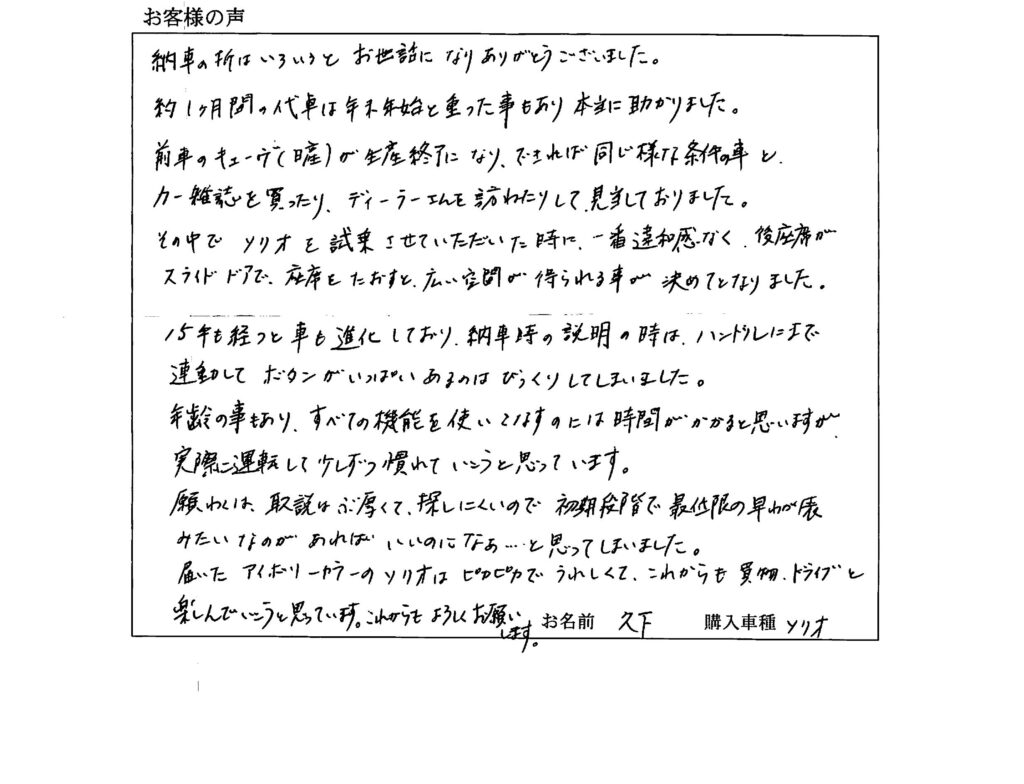 お客様の声
納車の折はいろいろとお世話になりありがとうございました。
約1ヶ月間の代車は年末年始と重った事もあり本当に助かりました。
前車のキューヴ(日産)が生産終了になり、できれば同じ様な条件の車と、
カー雑誌を買ったり、ディーラーさんを訪ねたりして、見当しておりました。
その中でソリオを試乗させていただいた時に、一番違和感なく、後座席が
スライドドアで、座席をたおすと、広い空間が得られる事が決めてとなりました。
15年も経つと車も進化しており、納車時の説明の時は、ハンドルにまで
連動してボタンがいっぱいあるのはびっくりしてしまいました。
年齢の事もあり、すべての機能を使いこなすのには時間がかかると思いますが
実際に運転して少しずつ慣れていこうと思っています。
願わくは、取説はぶ厚くて、探しにくいので初期段階で最低限の早わかり表
みたいなのがあればいいのになぁ…と思ってしまいました。
届いたアイボリーカラーのソリオはピカピカでうれしくて、これからも買物、ドライブと
楽しんでいこうと思っています。これからもよろしくお願い
します。
お名前 久下 購入車種 ソリオ